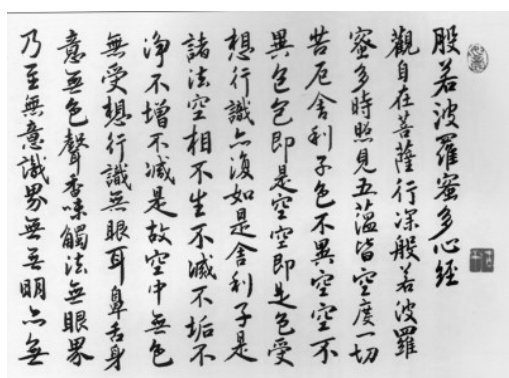 般若波羅蜜多心經
觀自在菩薩行深般若波羅
蜜多時照見五蘊皆空度一切
苦厄舍利子色不異空空不
異色色即是空空即是色受
想行識亦復如是舍利子是
諸法空相不生不滅不垢不
淨不增不減是故空中無色
無受想行識無眼耳鼻舌身
意無色聲香味觸法無眼界
乃至無意識界無無明亦無